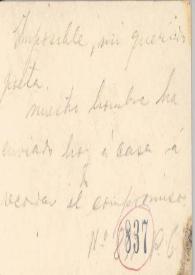 Imposible, mi querido
poeta.
Nuestro hombre ha
enviado hoy á casa á
recordar el compromiso.
No
837